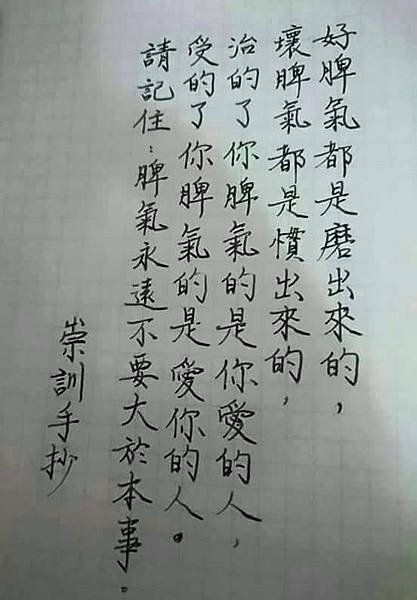 好脾氣都是磨出來的，
壞脾氣都是慣出來的，
治的了你脾氣的是你愛的人，
受的了你脾氣的是愛你的人。
請記住：脾氣永遠不要大於本事．
崇訓手抄